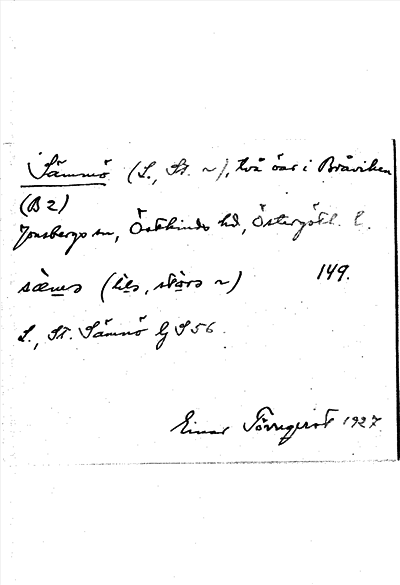 Sämmö (L., St. ~), två öar i Bråviken
(B 2)
Jonsbergs sn, Östkinds hd, Östergötl. l.
149.
L., St. Sämmö GS 56.
Einar Törnqvist 1927